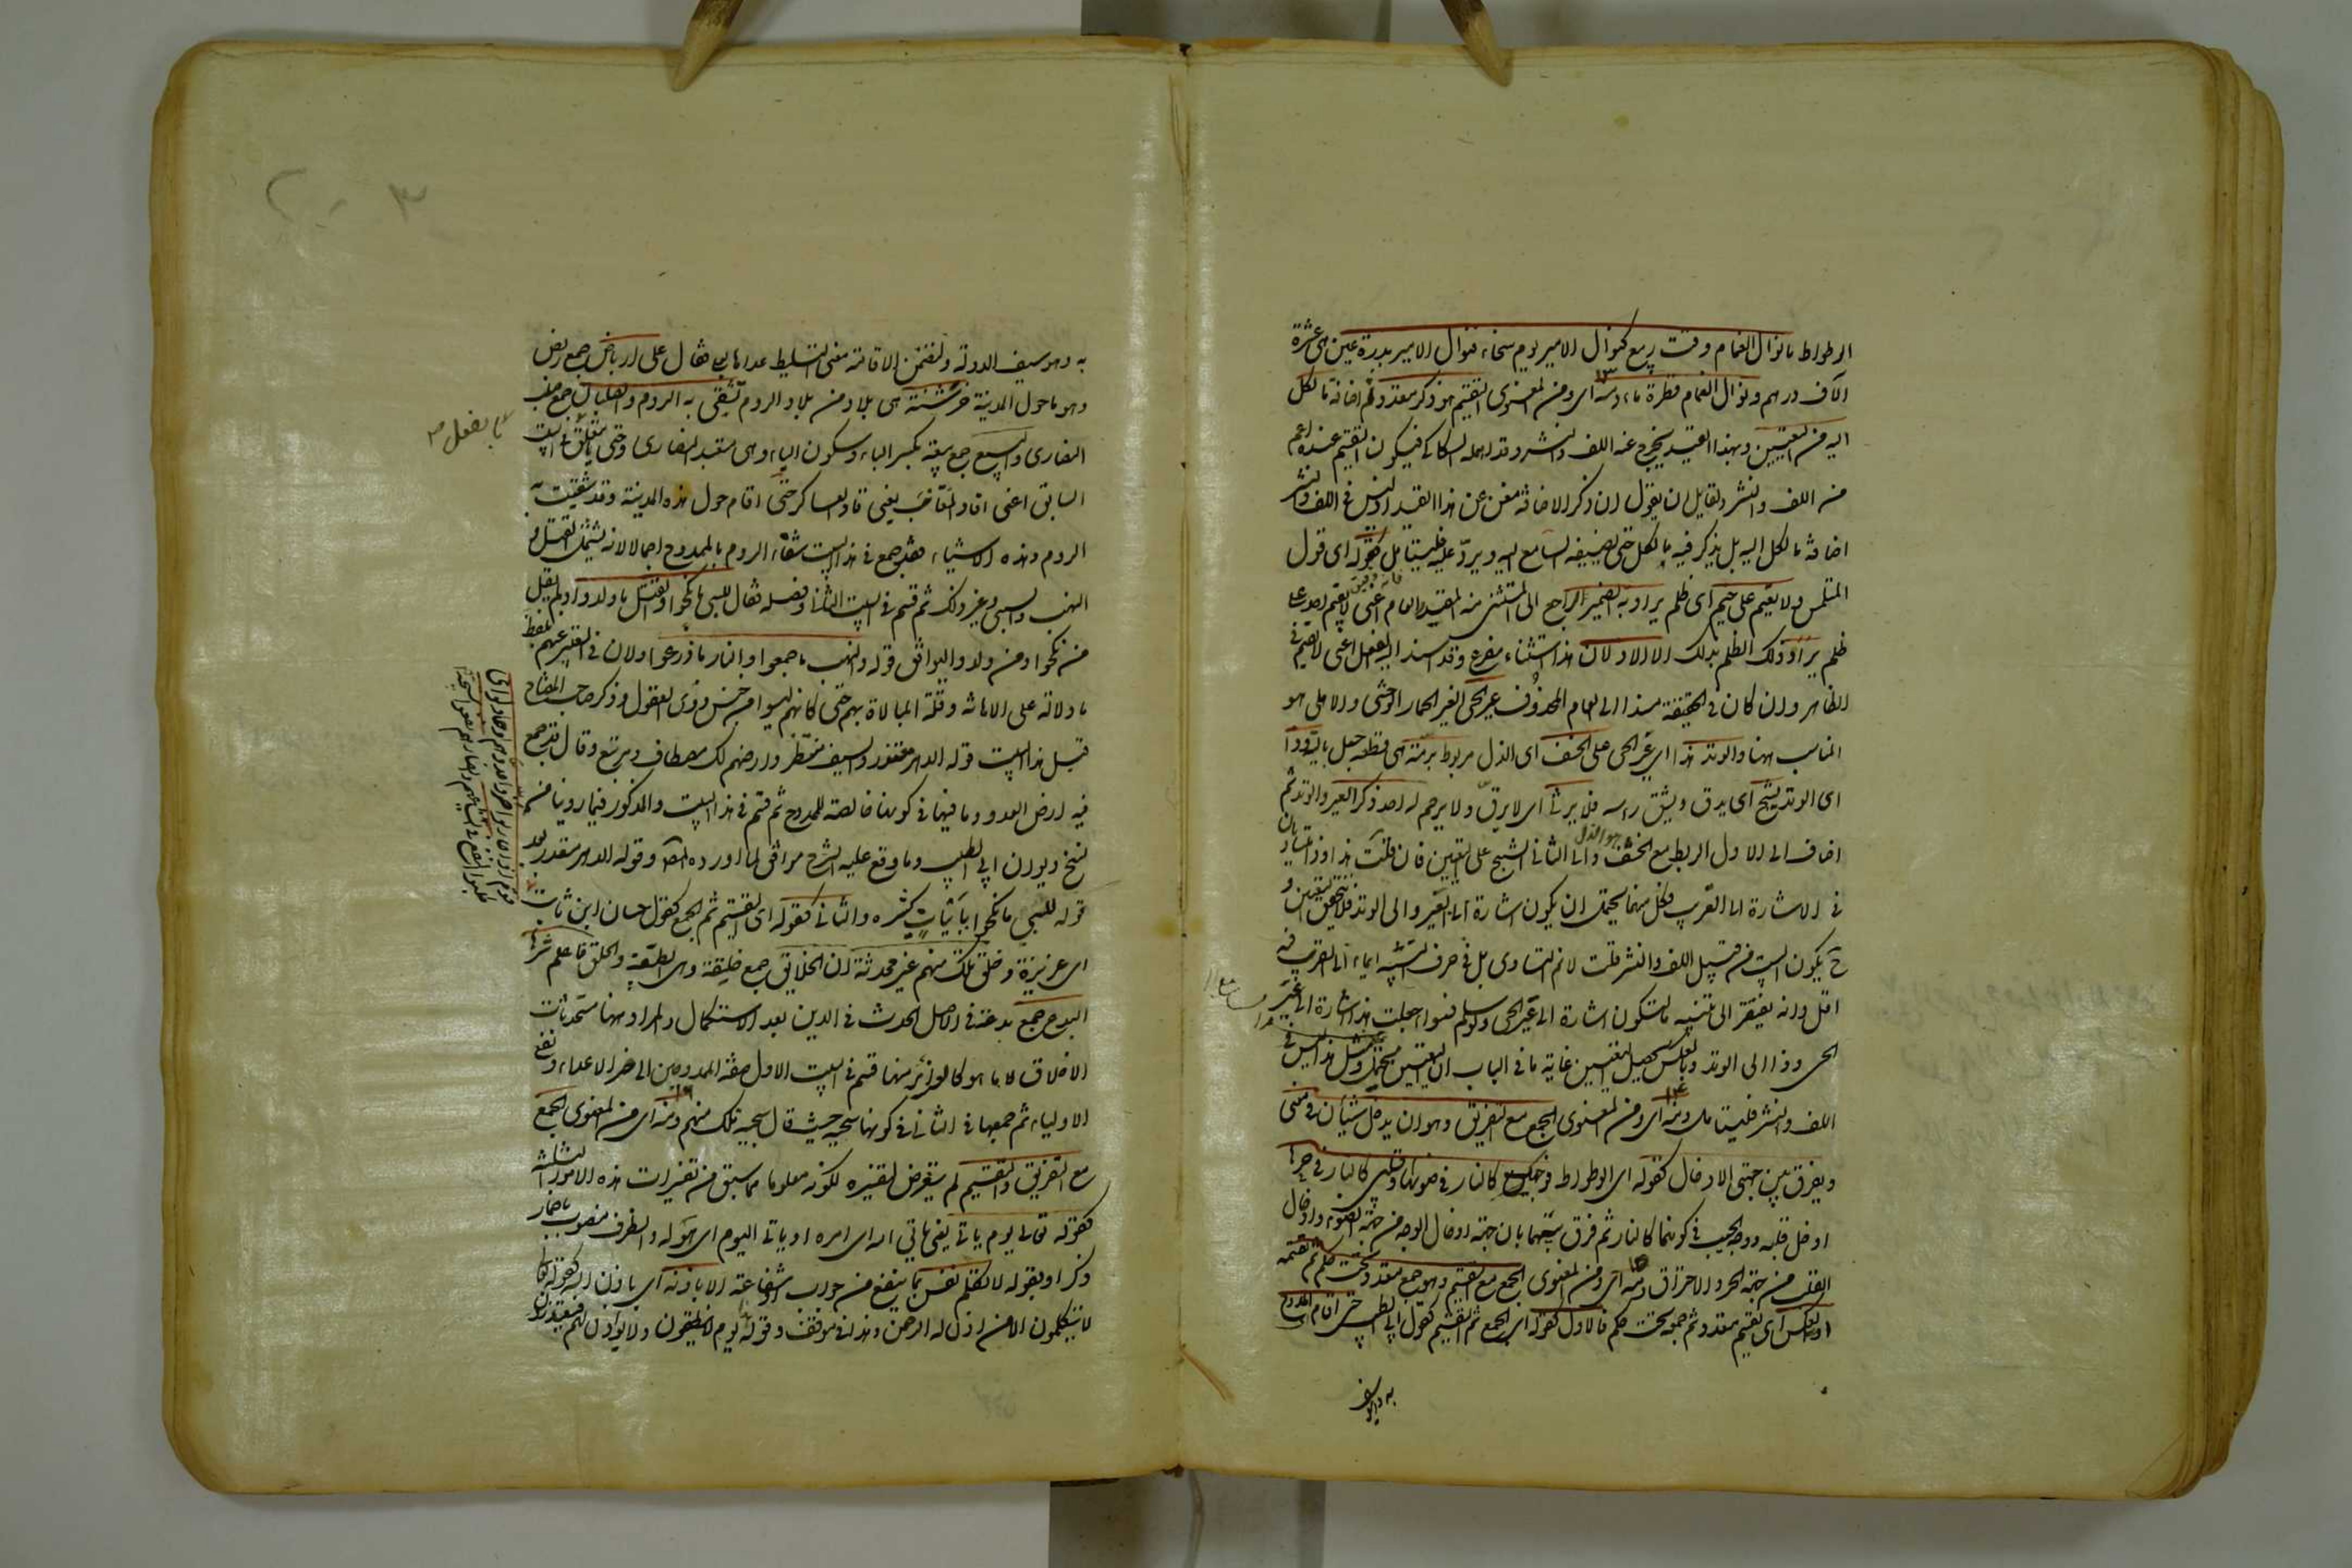 الوطواط ما نوال الغمام وقت ربيع كنوال الامير يوم سخاء فنوال الامير بدرة عين هى عشرة
الآف درهم ونوال الغمام قطرة ماء ومنه اى ومن المعنوى التقسيم وهو ذكر متعدد ثم اضافة ما لكل
اليه من التعيين وبهذا القيد يخرج عنه اللف والنشر وقد اهمله السكاكى فيكون التقسيم عنده اعم
من اللف والنشر ولقايل ان يقول ان ذكر الاضافة مغن عن هذا القيد اذ ليس فى اللف والنشر
اضافة ما لكل اليه بل يذكر فيه ما لكل حتى يضيفه السامع اليه ويرده عليه فليتامل كقوله اى قول
المتلمس ولا يقيم على ضيم اى ظلم يراد به الضمير الراجع الى المستثنى منه المقدر العام اى لا يقيم احد على
ظلم يراد ذلك الظلم بذلك الا الاذلان هذا استثناء مفرغ وقد اسند اليه الفعل اعنى لا يقيم فى
الظاهر وان كان فى الحقيقة مسندا الى العام المحذوف عير الحى العير الحمار الوحشى والاهلى هو
المناسب ههنا والوتد هذا اى عير الحى على الخسف اى الذل مربوط برمته هى قطعة حبل بالية وذا
اى الوتد يشج اى يدق ويشق راسه فلا يرثى اى لا يرق ولا يرحم له احد ذكر العير والوتد ثم
اضاف الى الاول الربط مع الخسف وهو الذل والى الثانى الشج على التعيين فان قلت هذا وذا متساويان
فى الاشارة الى القريب فكل منهما يحتمل ان يكون اشارة الى العير والى الوتد فلا يتحقق التعيين و
ح يكون البيت من قبيل اللف والنشر قلت لا نم التساوى بل فى حرف التنبيه ايماء الى القريب فيه
اقل وانه يفتقر الى تنبيه ما فتكون اشارة الى عير الحى ولو سلم فسواء جعلت هذا اشارة الى عير
الحى وذا الى الوتد وبالعكس يحصل التعيين غاية ما فى الباب ان التعيين محتمل ومثل هذا ليس فى
اللف والنشر فليتامل ومنه اى ومن المعنوى الجمع مع التفريق وهو ان يدخل شيآن فى معنى
ويفرق بين جهتى الادخال كقوله اى الوطواط فوجهك كالنار فى ضوئها وقلبى كالنار فى حرها
ادخل قلبه ووجه الحبيب فى كونهما كالنار ثم فرق بينهما بان جهة ادخال الوجه من جهة الضوء وادخال
القلب من جهة الحر والاحتراق ومنه اى ومن المعنوى الجمع مع التقسيم وهو جمع متعدد تحت حكم ثم تقسيمه
او العكس اى تقسيم متعدد ثم جمعه تحت حكم فالاول كقوله اى الجمع ثم التقسيم كقول ابى الطيب حتى اقام الممدوح
به وهو سيف
به وهو سيف الدولة ولتضمن الاقامة معنى التسليط عداها بعلى فقال على ارباض جمع ربض
وهو ما حول المدينة خرشنة هى بلاد من بلاد الروم تشقى به الروم والصلبان جمع صليب
النصارى والبيع جمع بيعة بكسر الباء وسكون الياء وهى متعبد النصارى وحتى يتعلق فى البيت
بالفعل
السابق اعنى قاد المقانب يعنى قاد العساكر حتى اقام حول هذه المدينة وقد شقيت به
الروم وهذه الاشياء فقد جمع فى هذا البيت شقاء الروم بالممدوح اجمالا لانه يشمل القتل و
النهب والسبى وغير ذلك ثم قسم فى البيت الثانى وفصله فقال للسبى ما نكحوا والقتل ما ولدوا ولم يقل
من نكحوا ومن ولدوا ليوافق قوله والنهب ما جمعوا والنار ما زرعوا ولان فى التعبير عنهم بلفظ
ما دلالة على الاهانة وقلة المبالاة بهم حتى كانهم ليسوا من جنس ذوى العقول وذكر صاحب المفتاح
قبل هذا البيت قوله الدهر معتذر والسيف منتظر وارضهم لك مصطاف ومرتبع وقال قد جمع
فيه ارض العدو وما فيها فى كونها خالصة للممدوح ثم قسم فى هذا البيت والمذكور فيما روينا من
نسخ ديوان ابى الطيب وما وقع عليه الشرح موافق لما اورده المصـ وقوله الدهر معتذر بعد
قوله للسبى ما نكحوا بابيات كثيره والثانى كقوله اى التقسيم ثم الجمع كقول حسان ابن ثابت
قوم اذا حاربوا ضروا عدوهم او حاولوا اى
طلبوا النفع فى اشياعهم نفعوا سجية
اى غريزة وخلق تلك منهم غير محدثة ان الخلايق جمع خليقة وهى الطبيعة والخلق فاعلم شرها
البدع جمع بدعة فى الاصل الحدث فى الدين بعد الاستكمال والمراد ههنا مستحدثات
الاخلاق لا ما هو كالغرائز منها قسم فى البيت الاول صفة الممدوحين الى ضر الاعداء ونفع
الاولياء ثم جمعها فى الثانى فى كونها سجية حيث قال سجية تلك منهم ومنه اى من المعنوى الجمع
مع التفريق والتقسيم لم يتعرض لتفسيره لكونه معلوما مما سبق من تفسيرات هذه الامور الثلثة
كقوله تعالى يوم ياتى يعنى ياتى الله اى امره او ياتى اليوم اى هوله والظرف منصوب باضمار
اذكر او بقوله لا تكلم نفس بما ينفع من جواب او شفاعة الا باذنه اى باذن الله كقوله تعالى
لا يتكلمون الا من اذن له الرحمن وهذا فى موقف وقوله هذا يوم لا ينطقون ولا يؤذن لهم فيعتذرون